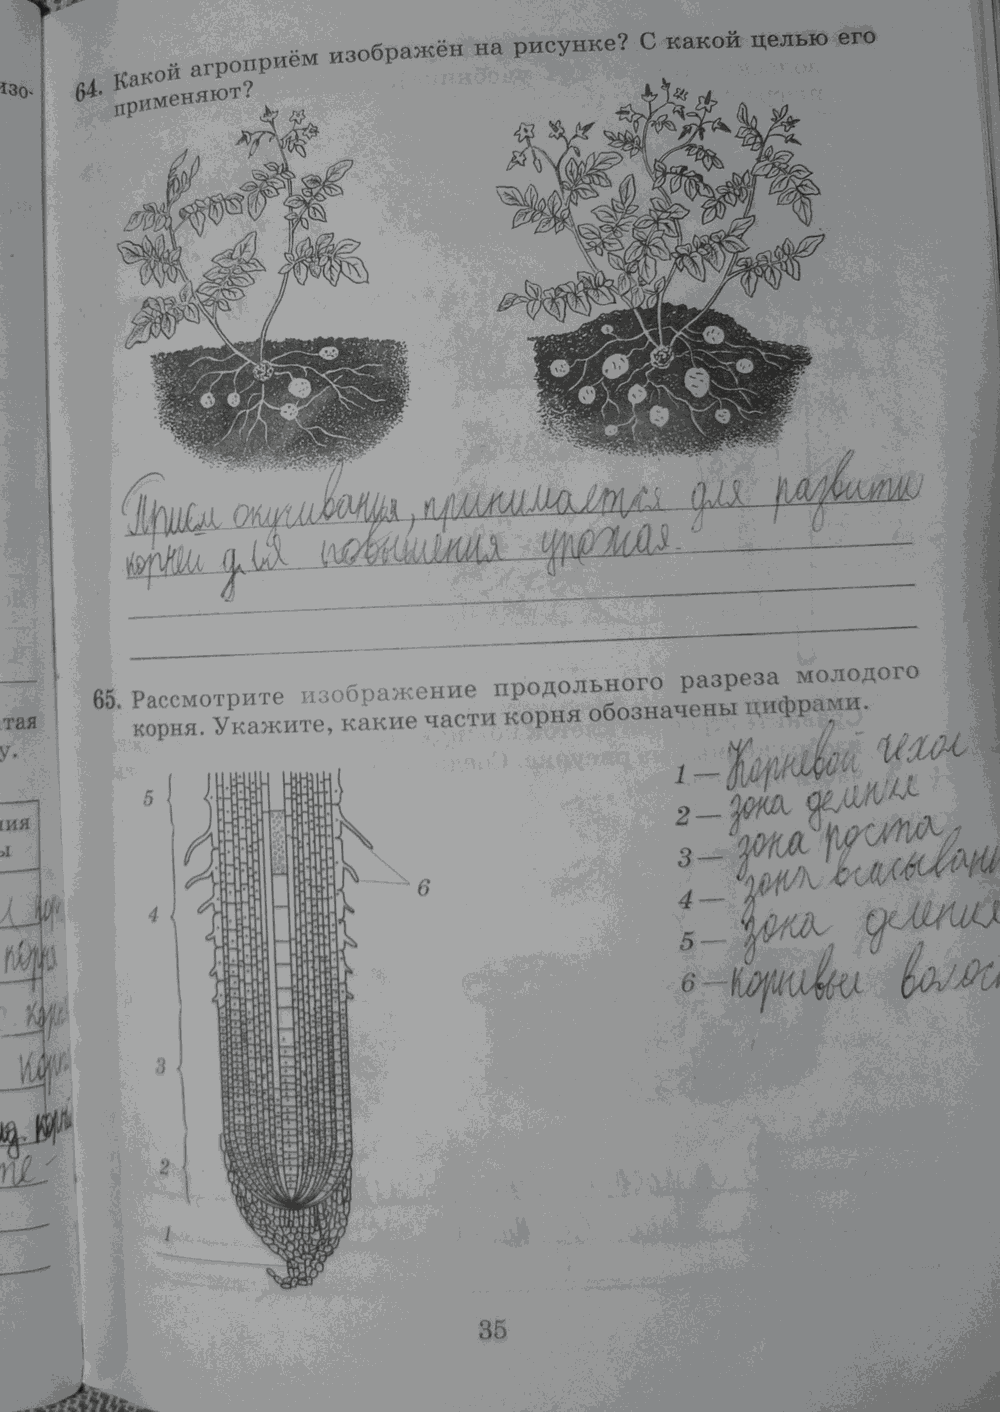 изо-
64. Какой агроприём изображён на рисунке? С какой целью его
применяют?
Приём окучивания, принимается для развитие
корней для повышения урожая.
65. Рассмотрите изображение продольного разреза молодого
корня. Укажите, какие части корня обозначены цифрами.
1 — Корневой чехол
2 — зона деления
3 — зона роста
4 — зона всасывани
5 — зона деления
6 — корневые волос
5
6
4
3
2
1
35
тая
у.
ния
ы